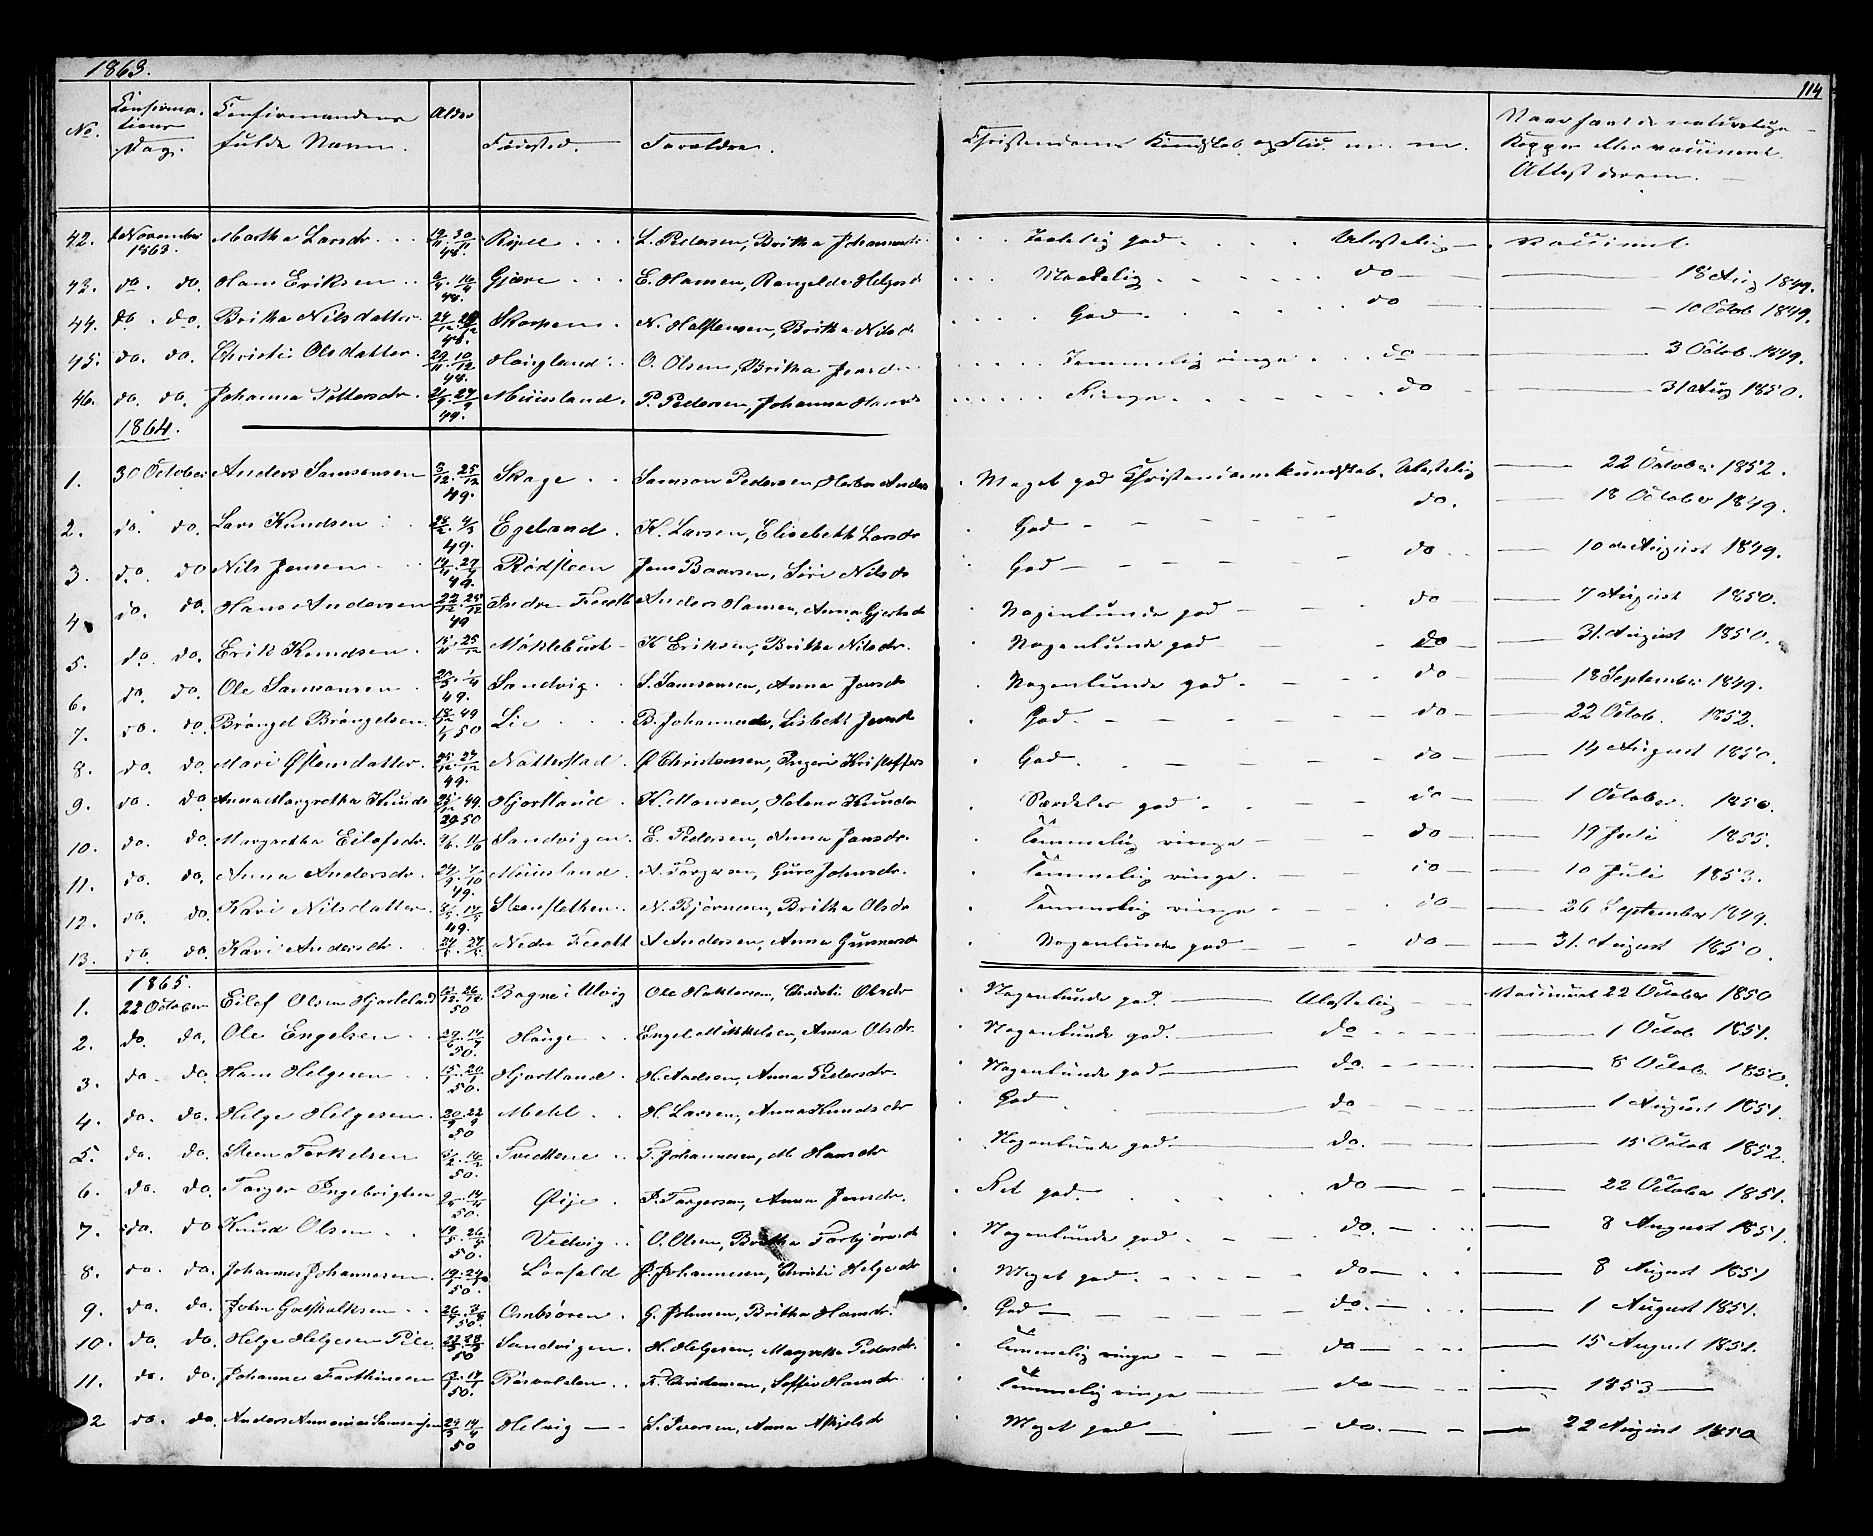 1863.
114
No. Confirmations Dag. Confirmandens fulde Navn. Alder Fødested. Forældre. Christendoms Kundskab og Flid m. m. Naar havt de naturlige Kopper eller vaccineret. Attest derom.
42. November 1863. Martha Larsdr. 19/11 30/11 48. L. Pedersen, Britha Johannesdr. god. Ulastelig Vaccineret
43. do. do. Hans Eriksen 48. Gjære E. Hansen, Rangelda Helgesd. Maadelig do 18 Aug 1849.
44. do. do. Britha Nilsdatter 48. Skorpen N. Halstensen, Britha Nilsd. God. do 10 Octob 1849.
45. do. do. Christi Olsdatter 29/11 10/12 48. Haugland O. Olsen, Britha Jensdr. Temmelig ringe do 3 Octob. 1849.
46. do. do. Johanna Pettersdr. 49. Muusland. P. Pedersen, Johanna Hansd. Ringe. do 31 Aug 1850.
1864.
1. 30 October Anders Samsonsen 5/12 25/12 49. Skage Samson Pedersen, Anders Meget god Christendomskundskab. Ulastelig 22 October 1852.
2. do. do. Lars Knudsen 49. Egeland. K. Larsen, Elisabeth Larsdr God do. 18 October 1849.
3. do. do Nils Jensen 49. Rødsteen Jens Baarsen, Siri Nilsdr God do 10de August 1849.
4. do. do. Hans Andersen 22/12 25/12 49 Indre Tvedt Anders Hansen, Anna Gjertsdr Nogenlunde god do 7 August 1850.
5. do. do. Erik Knudsen. 15/11 25/12 Møklebust K Eriksen, Britha Nilsdr. Nogenlunde god do 31. August 1850.
6. do. do. Ole Samsonsen 49. Sandvig. S. Samsonsen, Anna Jensdr Nogenlunde god. do 18 September 1849.
7. do. do. Brøngel Brøngelsen 50 Lie B. Johannesdr, Lisbeth Jensdr God. do 22 Octob. 1852.
8. do. do. Mari Østensdatter 49. Natterstad. Ø Christensen, Ingeri Kristoffers God. do 14 August 1850.
9. do. do. Anna Margretha Knuds 49. Hjortland. K. Monsen, Helena Knudsdr Særdeles god do 1 October. 1850.
10. do. do. Margretha Eilefsdr. 50 Sandvigen E. Pedersen, Anna Jensdr. Temmelig ringe do 19 Juli 1855.
11. do. do. Anna Andersdr. 49. Muusland. A. Torgersen, Guro Johnsdr. Temmelig ringe. do 10 Juli 1853.
12. do. do. Kari Nilsdatter 49. Steensletten. N. Bjørnsen, Britha Olsdr Temmelig ringe do 26 September 1849.
13. do. do. Kari Andersdr. Nedre Tvedt A Andersen, Anna Gunnarsdr Nogenlunde god do 31. August 1850.
1865.
1. 22 October Eilef Olsen Hjorteland 26/12 50 Bagne i Ulvig Ole Haktorsen, Christi Olsdr Nogenlunde god. Ulastelig Vaccineret 22 October 1850
2. do. do. Ole Engelsen 50. Hauge Engel Mikkelsen, Anna Olsdr. Nogenlunde god. do 1 Octob 1851.
3. do. do. Hans Helgesen 50. Hjortland H. Aadsen, Anna Pedersdr. Nogenlunde god do. 8 Octob. 1850.
4. do. do. Helge Helgesen 50 Mehl H. Larsen, Anna Knudsdr God do 1 August 1851.
5. do. do. Steen Torkelsen 50. Tvedtene T. Johannesen, M. Hansdr Nogenlunde god do. 15 Octob 1852.
6. do. do. Torger Ingebrigtsen 50. Øije I. Torgersen, Anna Jensdr. Ret god. do 22 October 1851.
7. do. do Knud Olsen 19/5 26/5 50. Vedvig O. Olsen, Britha Torbjørnsdr Nogenlunde god do. 8 August 1851.
8. do. do. Johannes Johannesen 50. Løvfald J. Johannesen, Christi Helgesdr Meget god. do 8 August 1851
9. do. do. John Gotskalksen 50 Ombsøren G. Johnsen, Britha Hansdr. God do. 1 August 1851.
10. do. do. Helge Helgesen Pile 50 Sandvigen H. Helgesen, Margretha Pedersdr. Temmelig ringe do 15 August 1851.
11. do. do. Johannes Torkildsen 50. T. Christensen, Soffie Hansdr. Temmelig ringe do 1853
2 do. do. Anders Annanias Samuelsen 50 Helvig L. Iversen, Anna Askjelsdr Meget god do. 22 August 1850